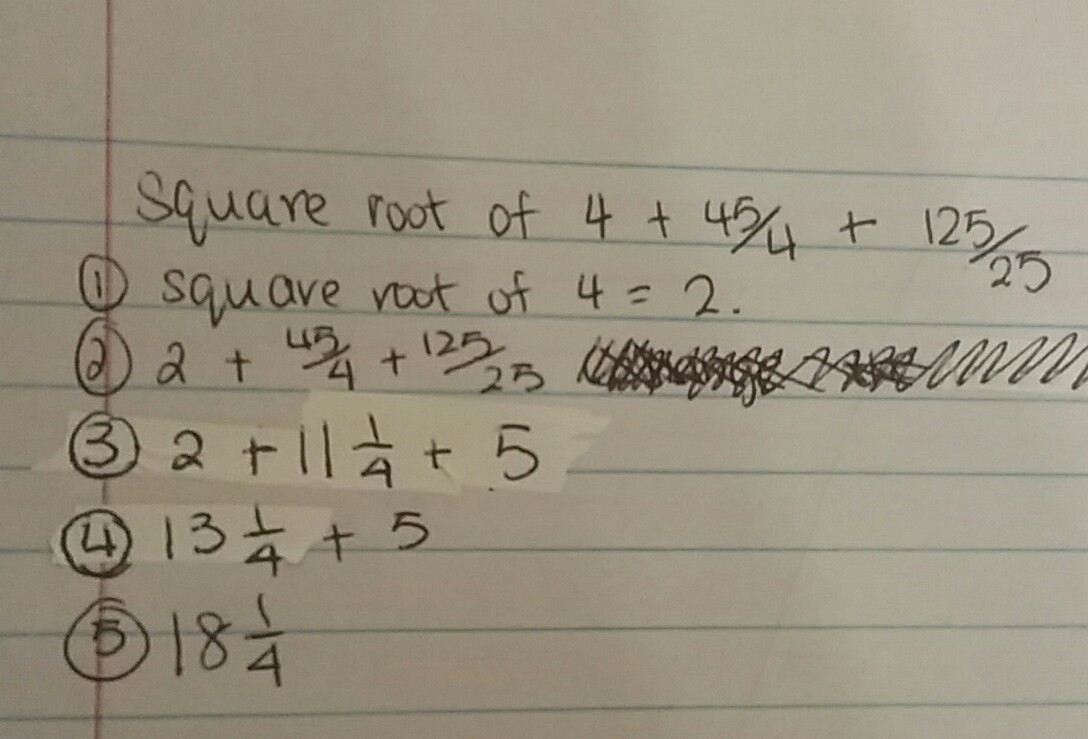 Square root of 4 + 45/4 + 125/25
① square root of 4 = 2.
② 2 + 45/4 + 125/25
③ 2 + 11 1/4 + 5
④ 13 1/4 + 5
⑤ 18 1/4